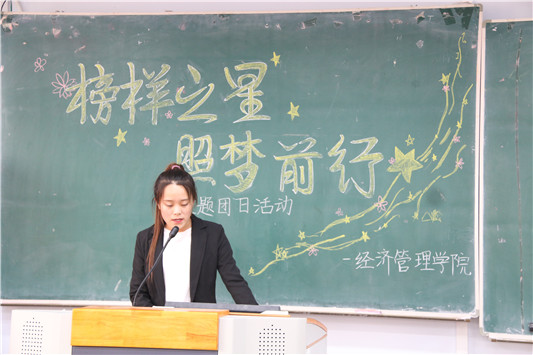 榜样之星
照梦前行
题团日活动
-经济管理学院